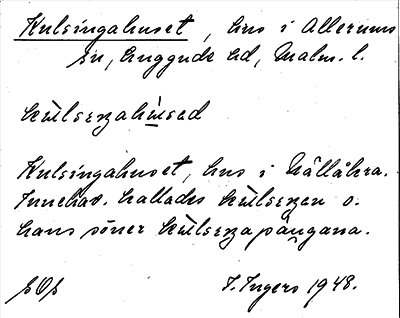 Kulsingahuset, hus i Allerums
sn, Luggude hd, Malm. l.
kùlseŋahùsed
Kulsingahuset, hus i Hällåkra.
Innehav. kallades kùlseŋen o.
hans söner kùlseŋapågana.
I. Ingers 1948.